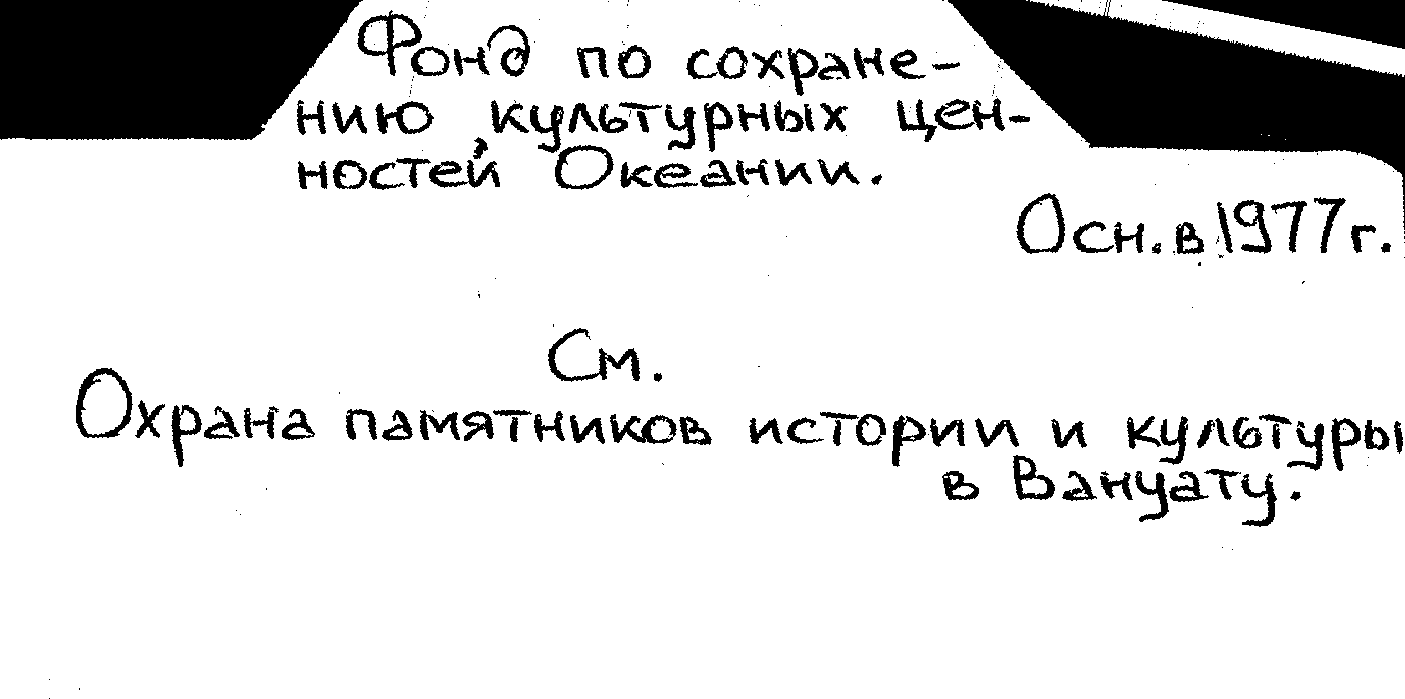 Фонд по сохране-
нию культурных цен-
ностей Океании.
Осн. в 1977 г.
См.
Охрана памятников истории и культуры
в Вануату.